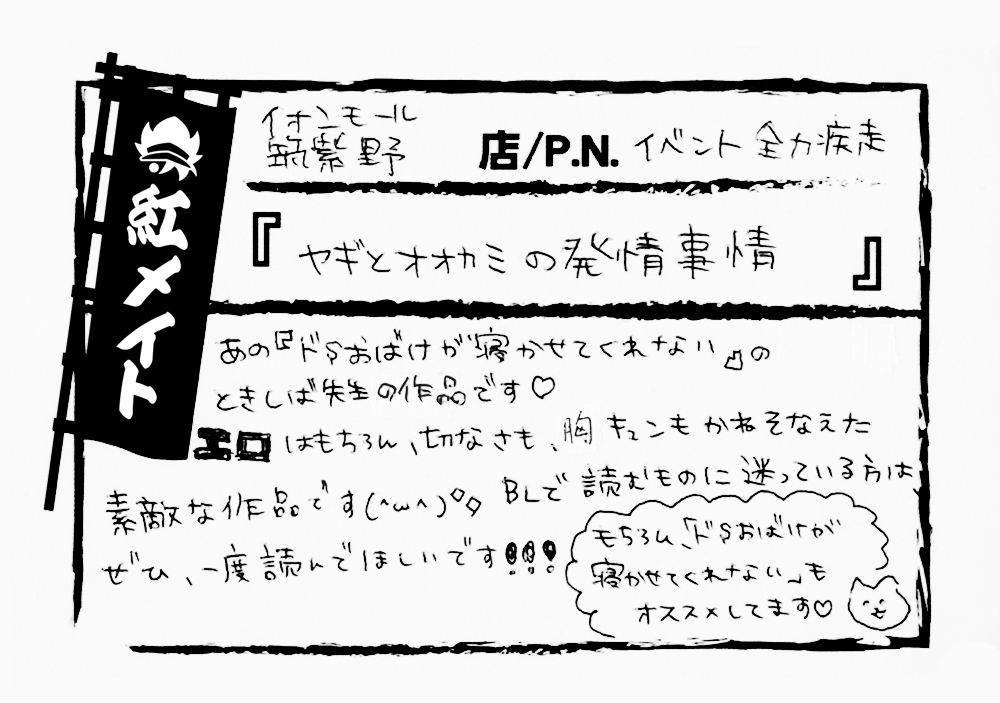 紅メイト
イオンモール
筑紫野 店/P.N. イベント全力疾走
『ヤギとオオカミの発情事情』
あの『ドSおばけが寝かせてくれない』の
ときしば先生の作品です♡
エロはもちろん、切なさも、胸キュンもかねそなえた
素敵な作品です(^ω^)◇◇ BLで読むものに迷っている方は
ぜひ、一度読んでほしいです!!!
モちろん、「ドSおばけが
寝かせてくれない」も
オススメしてます♡